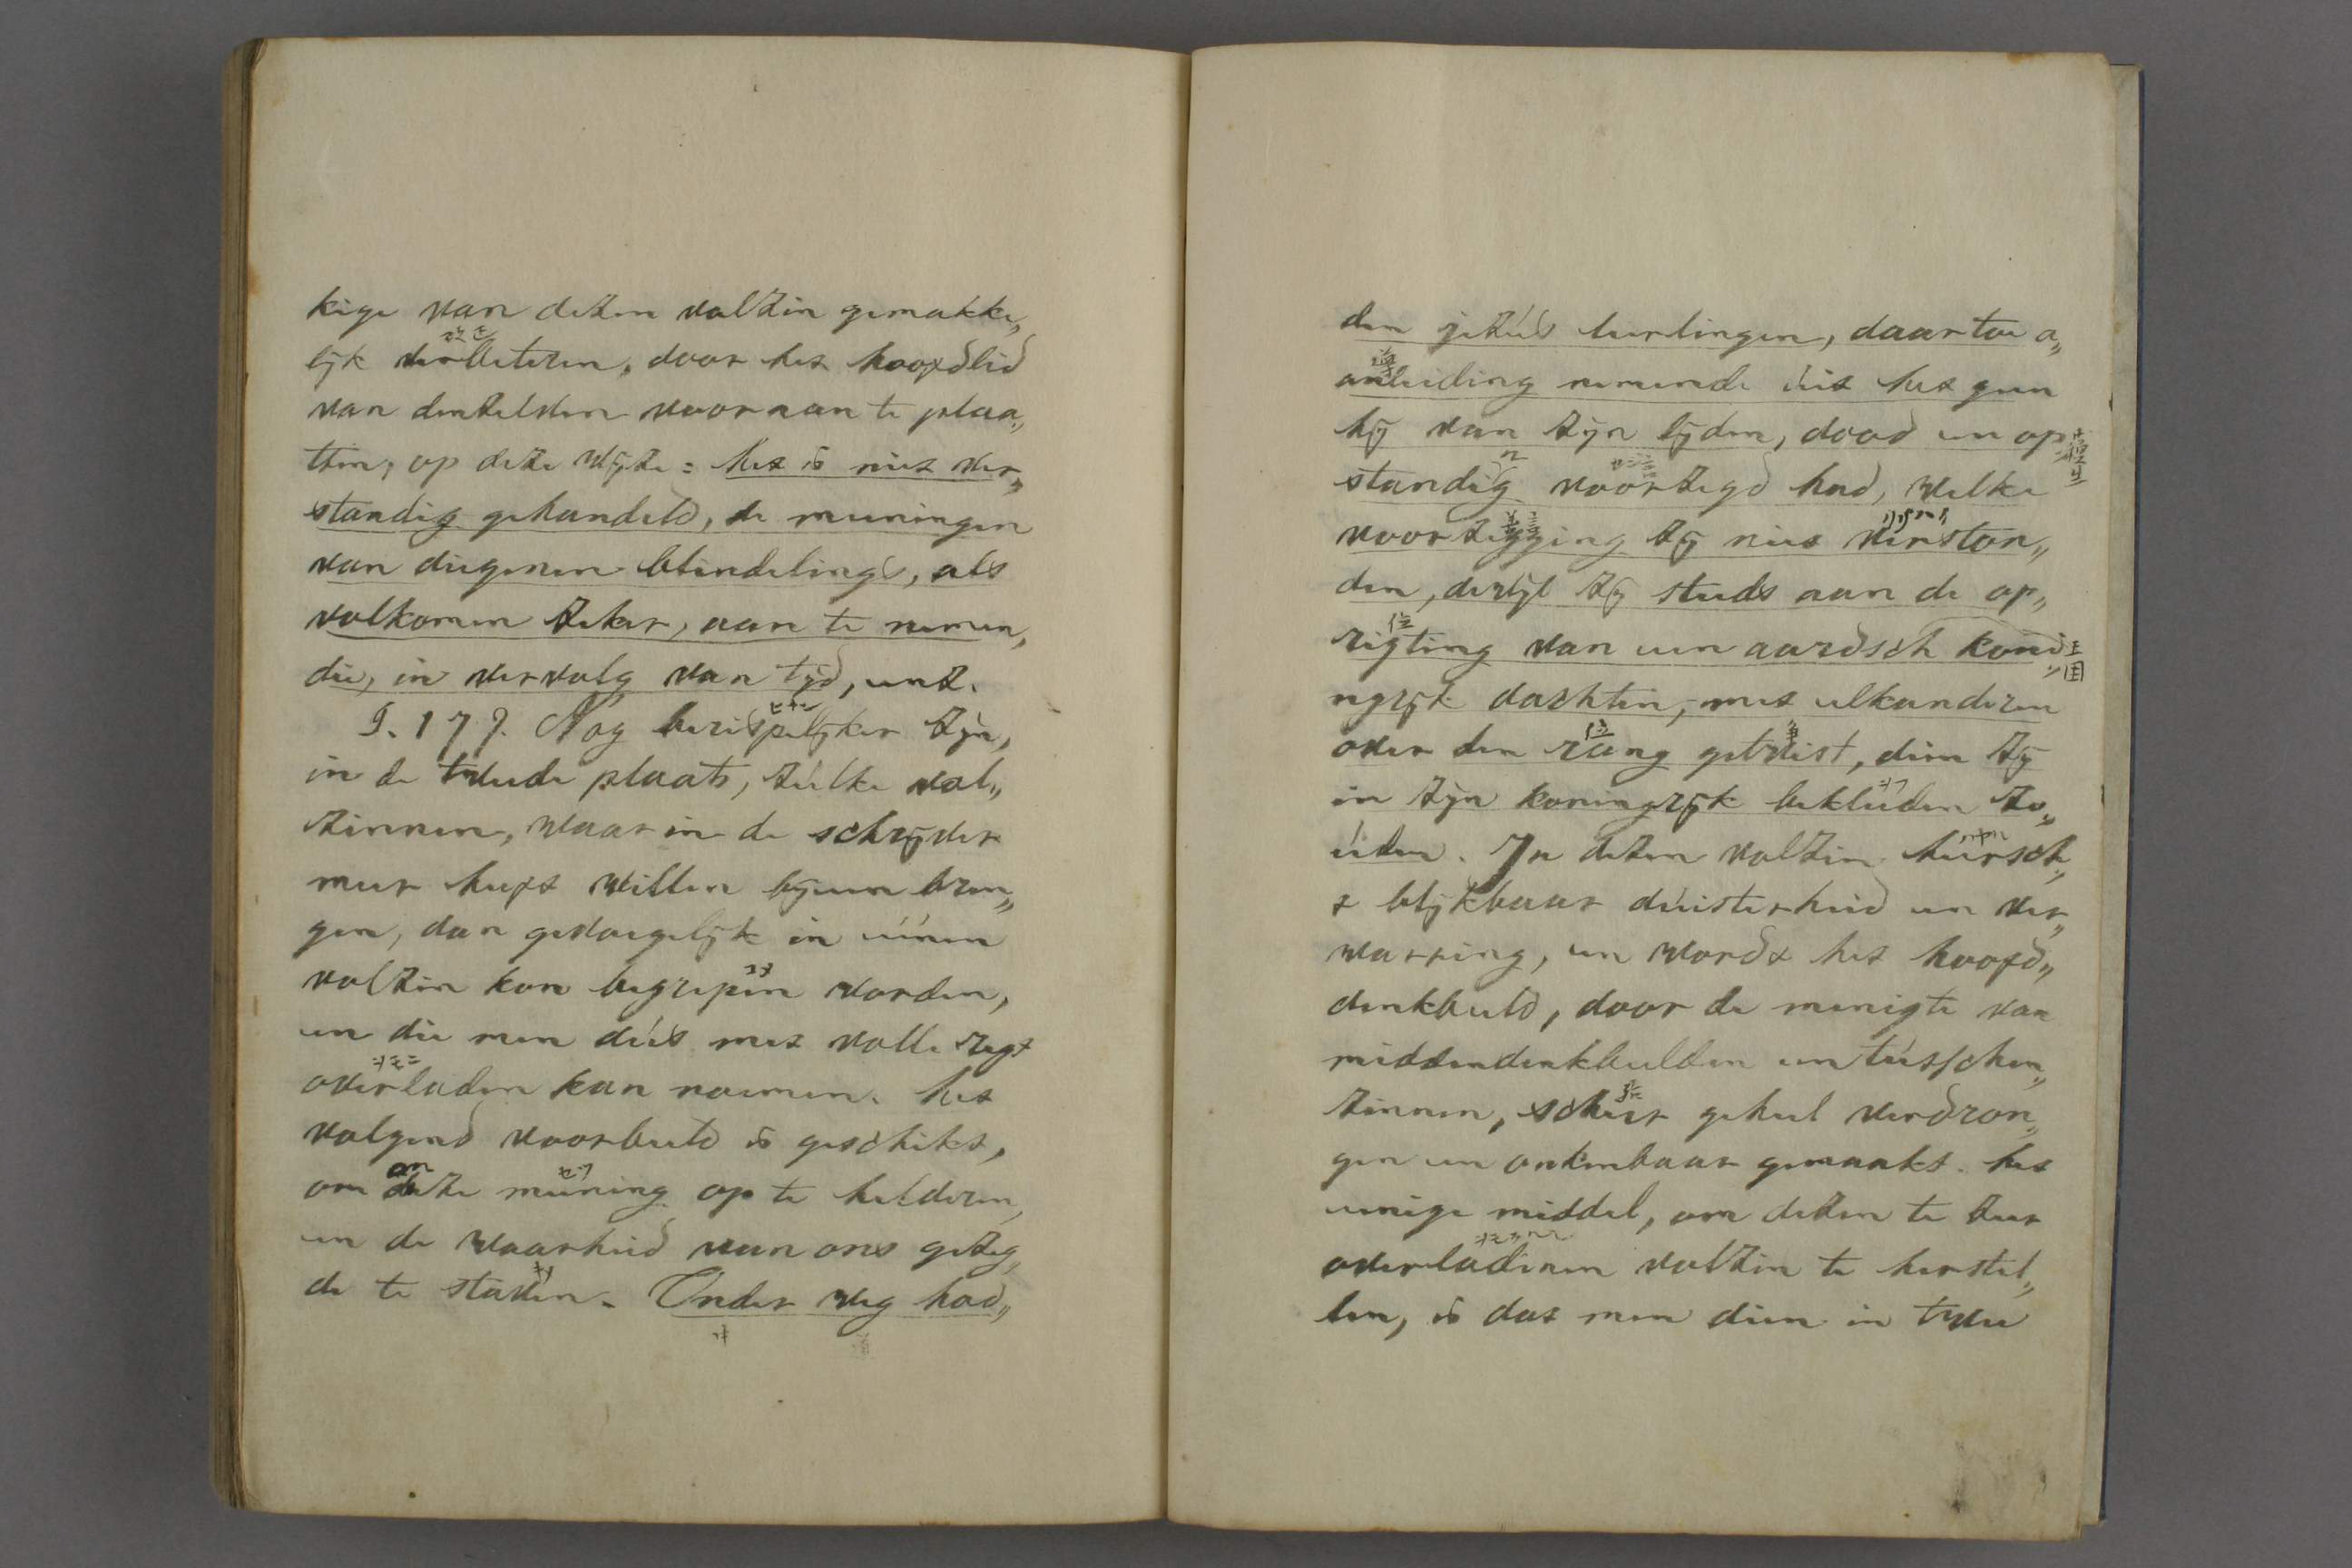 kige van dezen volzin gemakke„
lijk verbeteren, door het hoofdlid
van denzelven vooraan te plaa„
tsen, op deze wijze: het is niet ver„
standig gehandeld, de meeningen
van diegenen blindelings, als
volkomen zeker, aan te nemen,
die, in vervolg van tijd, enz.
§. 177. Nog berispelijker zijn,
in de tweede plaats, zulke vol„
zinnen, waar in de schrijver
meer heeft willen bijeen bren„
gen, dan gevoegelijk in éénen
volzin kon begrepen worden,
en die men dús met volle regt
overladen kan noemen. het
volgend voorbeeld is geschikt,
om deze meening op te helderen,
en de waarheid van ons gezeg„
de te staven. Onder weg had„
den jezús leerlingen, daartoe a„
anleiding nemende úit het geen
hij van zijn lijden, dood en op
standig voorzegd had, welke
voorzegging zij niet verston„
den, derwijl zij steeds aan de op„
rigting van een aardsch koni
王国
ngrijk dachten, met elkanderen
over den rang getwist, dien zij
in zijn koningrijk bekleeden zo„
úden. In dezen volzin heersch„
t blijkbaar dúisterheid en ver„
warring, en wordt het hoofd„
denkbeeld, door de menigte van
middendenkbeelden en tússchen„
zinnen, schier geheel verdron„
gen en onkenbaar gemaakt. het
eenige middel, om dezen te zeer
overladenen volzin te herstel„
len, is dat men dien in twee